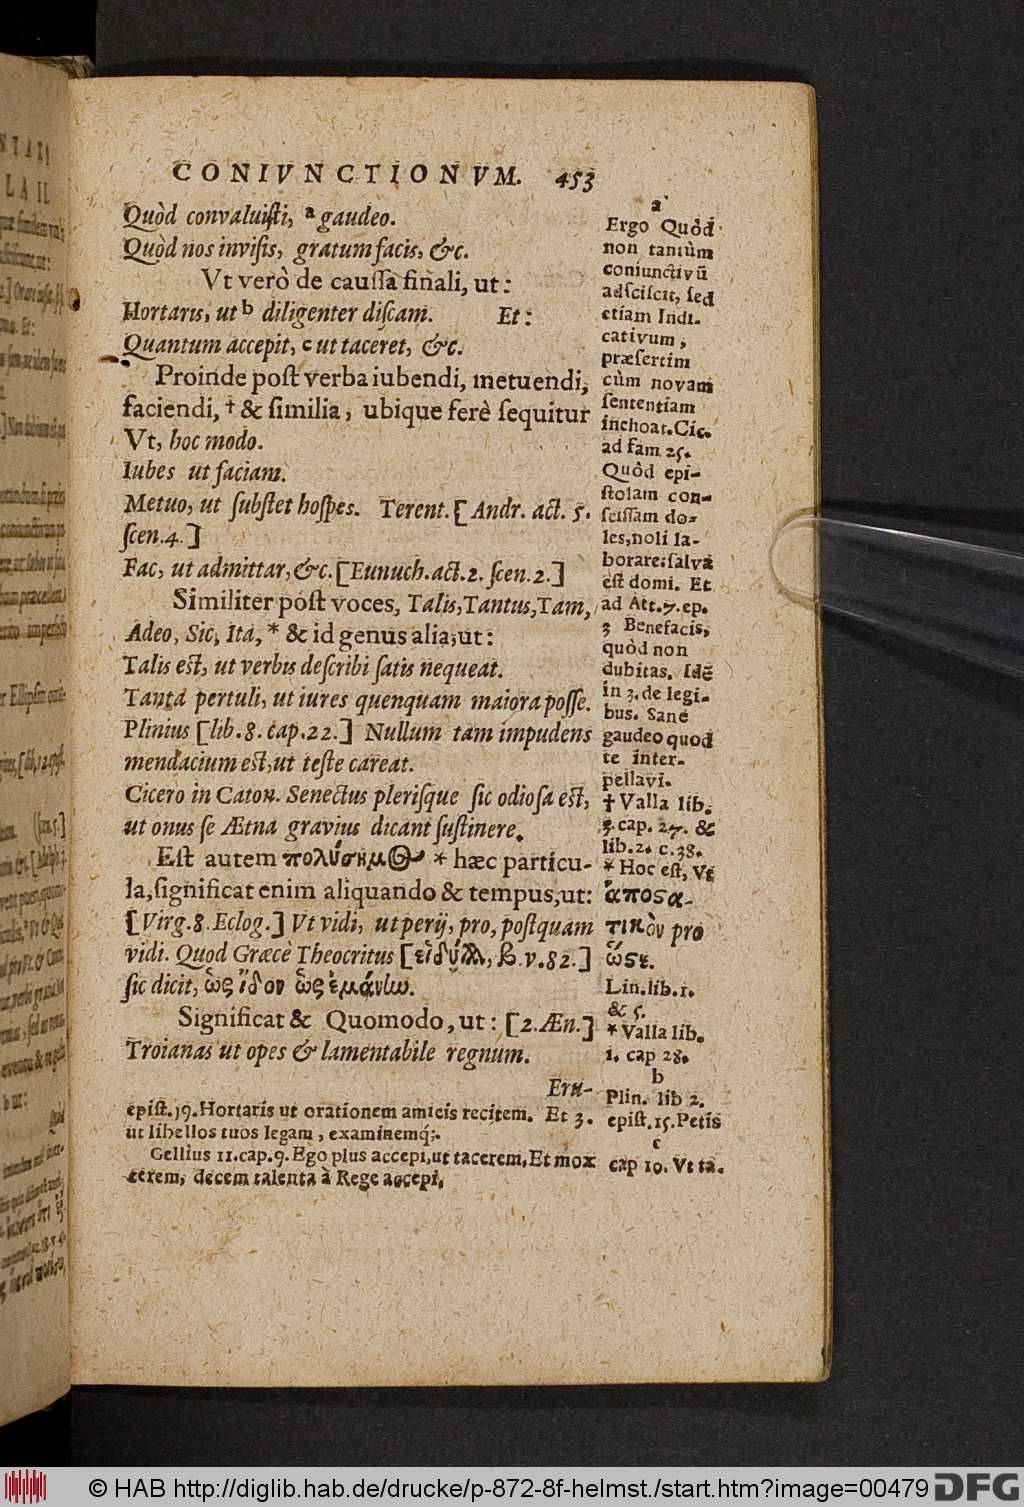 CONIVNCTIONVM. 453
Quòd convaluiſti, a gaudeo.
Quòd nos inviſis, gratum facis, &c.
Vt verò de cauſſa finali, ut:
Hortaris, ut b diligenter diſcam. Et:
Quantum accepit, c ut taceret, &c.
Proinde poſt verba iubendi, metuendi,
faciendi, † & ſimilia, ubique ferè ſequitur
Vt, hoc modo.
Iubes ut faciam.
Metuo, ut ſubſtet hoſpes. Terent. [Andr. act. 5.
ſcen. 4.]
Fac, ut admittar, &c. [Eunuch. act. 2. ſcen. 2.]
Similiter poſt voces, Talis, Tantus, Tam,
Adeo, Sic, Ita, * & id genus alia, ut:
Talis est, ut verbis deſcribi ſatis nequeat.
Tanta pertuli, ut iures quenquam maiora poſſe.
Plinius [lib. 8. cap. 22.] Nullum tam impudens
mendacium est, ut teſte careat.
Cicero in Caton. Senectus pleriſque ſic odioſa est,
ut onus ſe Ætna gravius dicant ſuſtinere.
Eſt autem πολύσημΘ * hæc particu-
la, ſignificat enim aliquando & tempus, ut:
[Virg. 8. Eclog.] Vt vidi, ut perij, pro, poſtquam
vidi. Quod Græcè Theocritus [εἰδύλ, β. v. 82.]
ſic dicit, ὡς ἴδον ὣς ἐμάνω.
Significat & Quomodo, ut: [2. Æn.]
Troianas ut opes & lamentabile regnum.
Eru-
epiſt. 19. Hortaris ut orationem amicis recitem. Et 3.
ut libellos tuos legam, examinemq́;.
Gellius 11. cap. 9. Ego plus accepi, ut tacerem, Et mox
cerem, decem talenta à Rege accepi.
a
Ergo Quòd
non tantùm
coniunctivũ
adſciſcit, ſed
etiam Indi-
cativum,
præſertim
cùm novam
ſententiam
inchoat. Cic.
ad fam 25.
Quòd epi-
ſtolam con-
ſciſſam do-
les, noli la-
borare: ſalva
eſt domi. Et
ad Att. 7. ep.
3 Benefacis,
quòd non
dubitas. Idẽ
in 3. de legi-
bus. Sane
gaudeo quod
te inter-
pellavi.
† Valla lib.
3. cap. 27. &
lib. 2. c. 38.
* Hoc eſt, Vt
ἀποϛα-
τικὸν pro
ὥϛε.
Lin. lib. 1.
& 5.
* Valla lib.
1. cap 28.
b
Plin. lib 2.
epiſt. 15. Petis
c
cap 10. Vt ta-
© HAB http://diglib.hab.de/drucke/p-872-8f-helmst./start.htm?image=00479 DFG